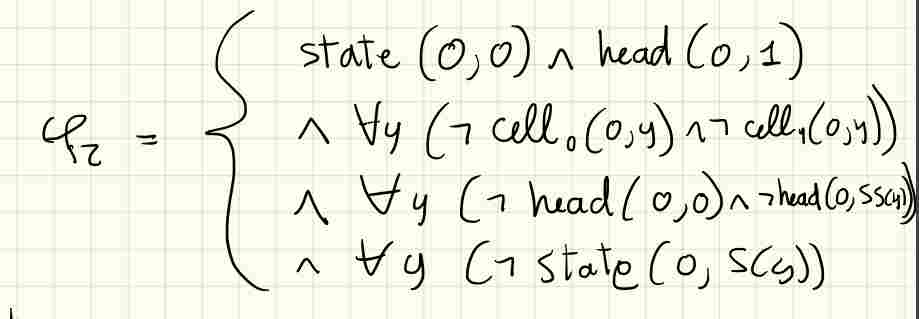 φ₂ = { state (0,0) ∧ head (0,1)
∧ ∀y (¬ cell₀ (0,y) ∧ ¬ cell₁ (0,y))
∧ ∀y (¬ head (0,0) ∧ ¬ head (0,SS(y))
∧ ∀y (¬ state (0, S(y))